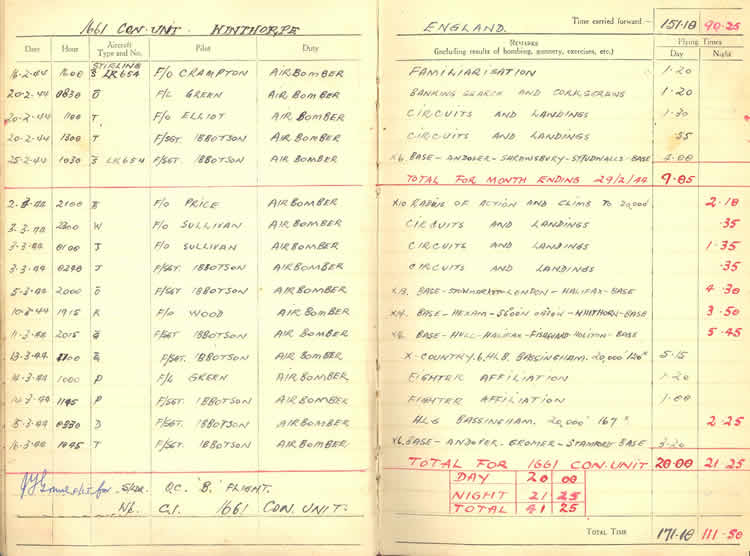 1661 CON. UNIT. WINTHORPE
Date Hour Aircraft Type and No. Pilot Duty
STIRLING
16-2-44 1600 S LK654 F/O CRAMPTON AIR BOMBER
20-2-44 0830 F/L GREEN AIR BOMBER
20-2-44 1100 T F/O ELLIOT AIR BOMBER
20-2-44 1300 T F/SGT. IBBOTSON AIR BOMBER
25-2-44 1030 LK654 F/SGT. IBBOTSON AIR BOMBER
2-3-44 2100 F/O PRICE AIR BOMBER
3-3-44 W F/O SULLIVAN AIR BOMBER
3-3-44 0100 J F/O SULLIVAN AIR BOMBER
3-3-44 J F/SGT. IBBOTSON AIR BOMBER
5-3-44 2000 F/SGT IBBOTSON AIR BOMBER
10-3-44 1915 R F/O WOOD AIR BOMBER
11-3-44 2015 F/SGT. IBBOTSON AIR BOMBER
13-3-44 F/SGT. IBBOTSON AIR BOMBER
1000 P F/L GREEN AIR BOMBER
P F/SGT. IBBOTSON AIR BOMBER
D F/SGT. IBBOTSON AIR BOMBER
T F/SGT. IBBOTSON AIR BOMBER
for O.C. 'B' FLIGHT.
C.I. 1661 CON. UNIT.
ENGLAND. Time carried forward:- 151·10 90·25
REMARKS Flying Times
(including results of bombing, gunnery, exercises, etc.) Day Night
FAMILIARISATION 1·20
BANKING SEARCH AND CORKSCREWS 1·20
CIRCUITS AND LANDINGS 1·30
CIRCUITS AND LANDINGS ·55
X6. BASE-ANDOVER-SHREWSBURY-STUDWALLS-BASE 4·00
TOTAL FOR MONTH ENDING 29/2/44 9·05
X10 RADIUS OF ACTION AND CLIMB TO 20,000' 2·10
CIRCUITS AND LANDINGS ·35
CIRCUITS AND LANDINGS 1·35
CIRCUITS AND LANDINGS ·35
BASE-STOWMARKET-LONDON-HALIFAX-BASE 4·30
BASE-HEXAM-WHITHORN-BASE 3·50
BASE-HULL-HALIFAX-FISHGUARD-BASE 5·45
X-COUNTRY.6.HLB. BASSINGHAM. 20,000' 120" 5·15
FIGHTER AFFILIATION 1·20
FIGHTER AFFILIATION 1·00
HLB BASSINGHAM. 20,000' 167" 2·25
X6. BASE-ANDOVER-CROMER-STAMFORD BASE 3·20
TOTAL FOR 1661 CON. UNIT 20·00 21·25
DAY 20 00
NIGHT 21 25
TOTAL 41 25
TOTAL TIME 171·10 111·50